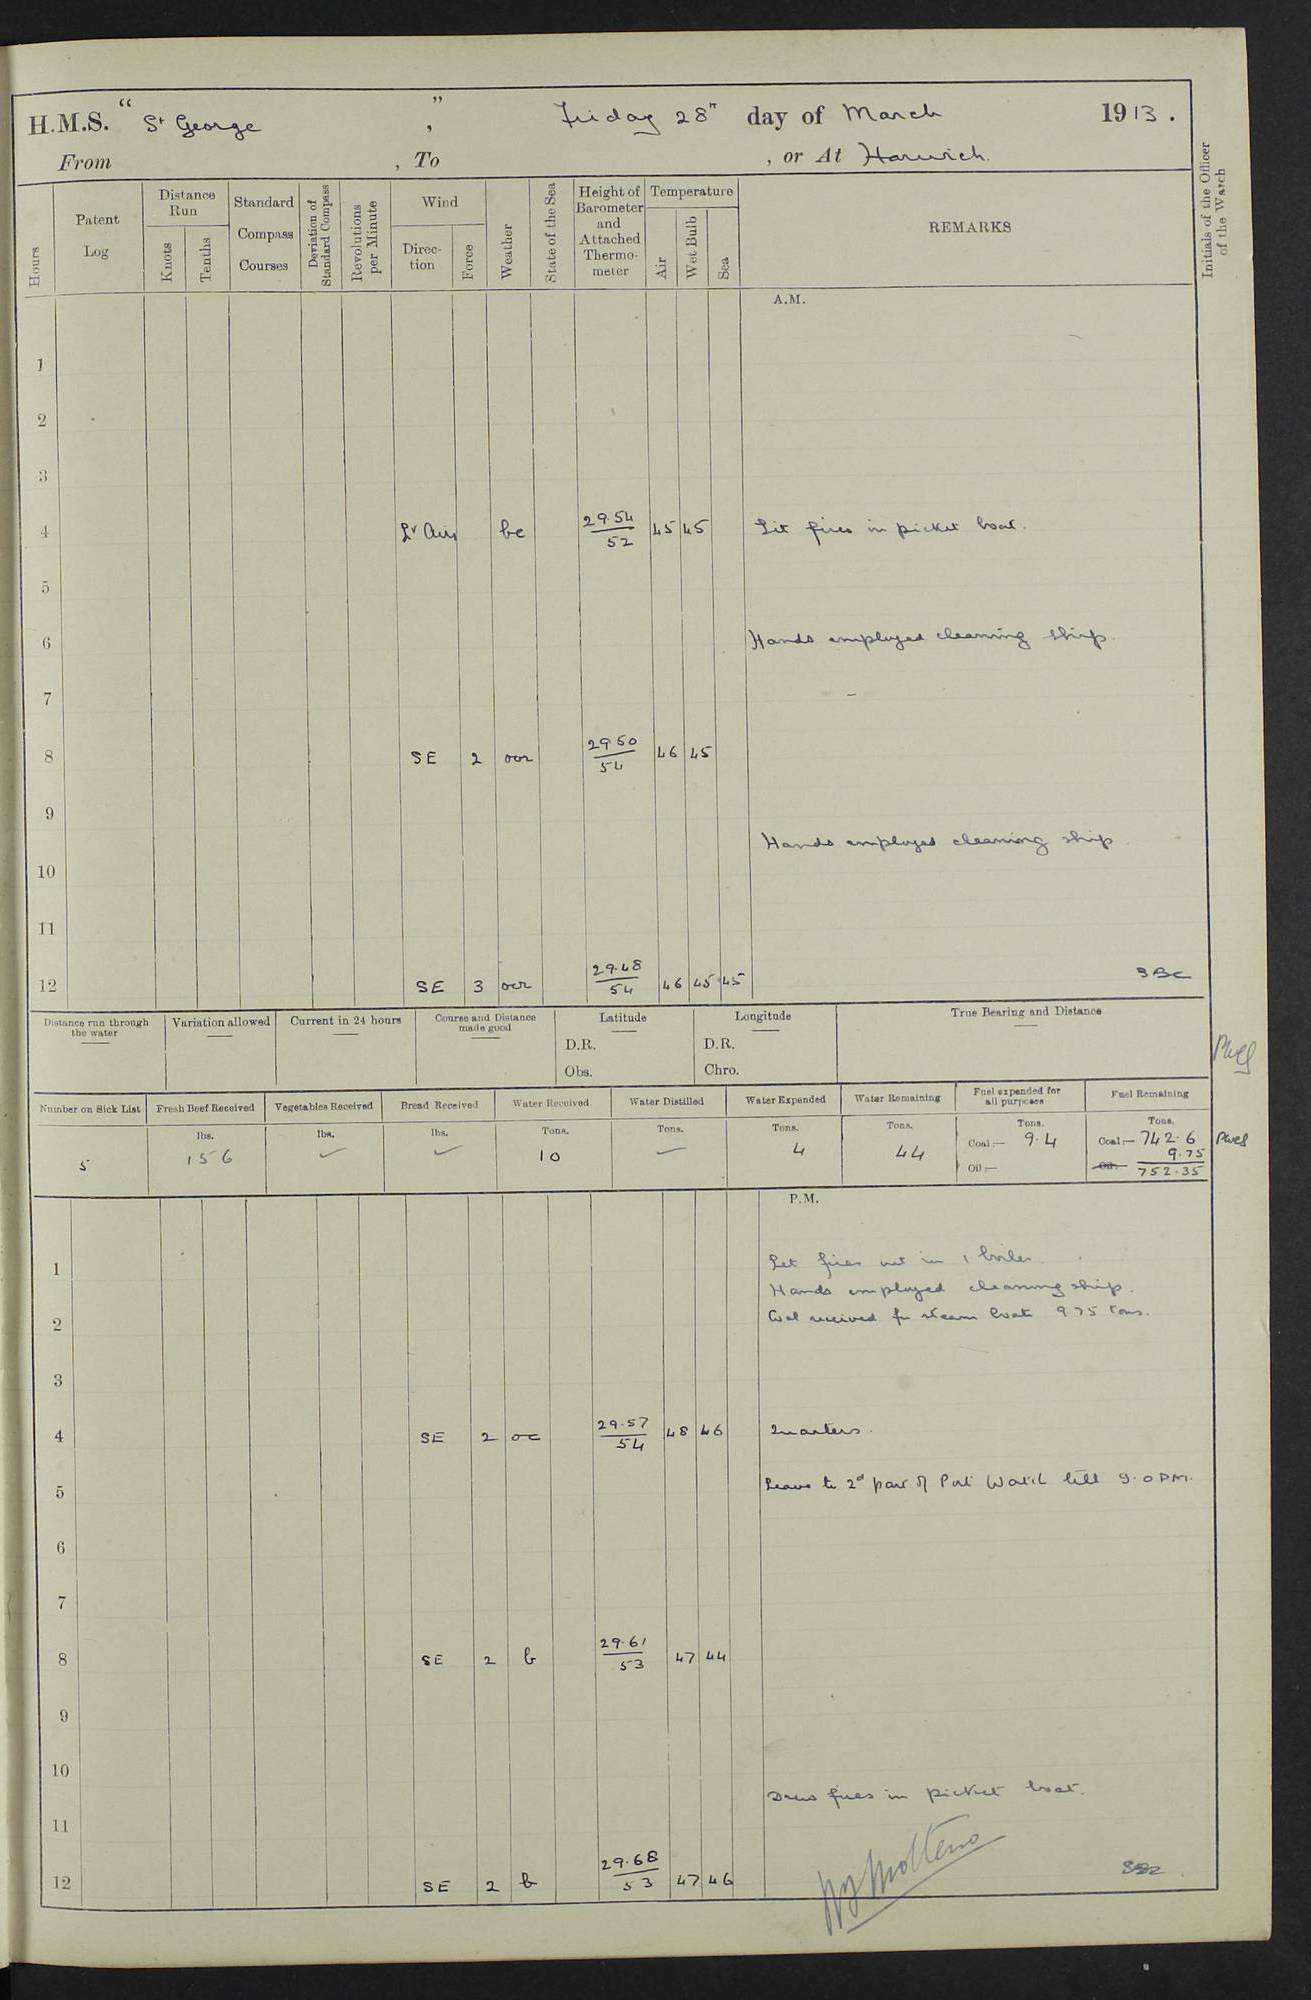 H.M.S. " St George ", Friday 28th day of March 1913.
From , To , or At Harwich.
Hours Patent Log Distance Run Knots Tenths Standard Compass Courses Deviation of Standard Compass Revolutions per Minute Wind Direc-tion Force Weather State of the Sea Height of Barometer and Attached Thermo-meter Temperature Air Wet Bulb Sea REMARKS Initials of the Officer of the Watch
A.M.
1
2
3
4 Lt Airs bc 29.54 / 52 45 45 Lit fires in picket boat.
5
6 Hands employed cleaning ship.
7
8 SE 2 ocr 29 50 / 54 46 45
9
Hands employed cleaning ship.
10
11
12 SE 3 ocr 29.48 / 54 46 45 45
Distance run through the water Variation allowed Current in 24 hours Course and Distance made good Latitude Longitude True Bearing and Distance
D.R. D.R.
Obs. Chro.
Number on Sick List Fresh Beef Received Vegetables Received Bread Received Water Received Water Distilled Water Expended Water Remaining Fuel expended for all purposes Fuel Remaining
lbs. lbs. lbs. Tons. Tons. Tons. Tons. Tons. Tons.
5 156 ✓ ✓ 10 ✓ 4 44 Coal:— 9.4 Coal:— 742.6
9.75
Oil:— Oil:— 752.35
P.M.
1 Let fires out in 1 boiler.
Hands employed cleaning ship.
2 Coal received for steam boats 9.75 tons.
3
4 SE 2 oc 29.57 / 54 48 46 Quarters.
5 Leave to 2d part of Port Watch till 9.0 PM.
6
7
8 SE 2 b 29.61 / 53 47 44
9
10
Drew fires in picket boat.
11
12 SE 2 b 29.68 / 53 47 46
Molteno